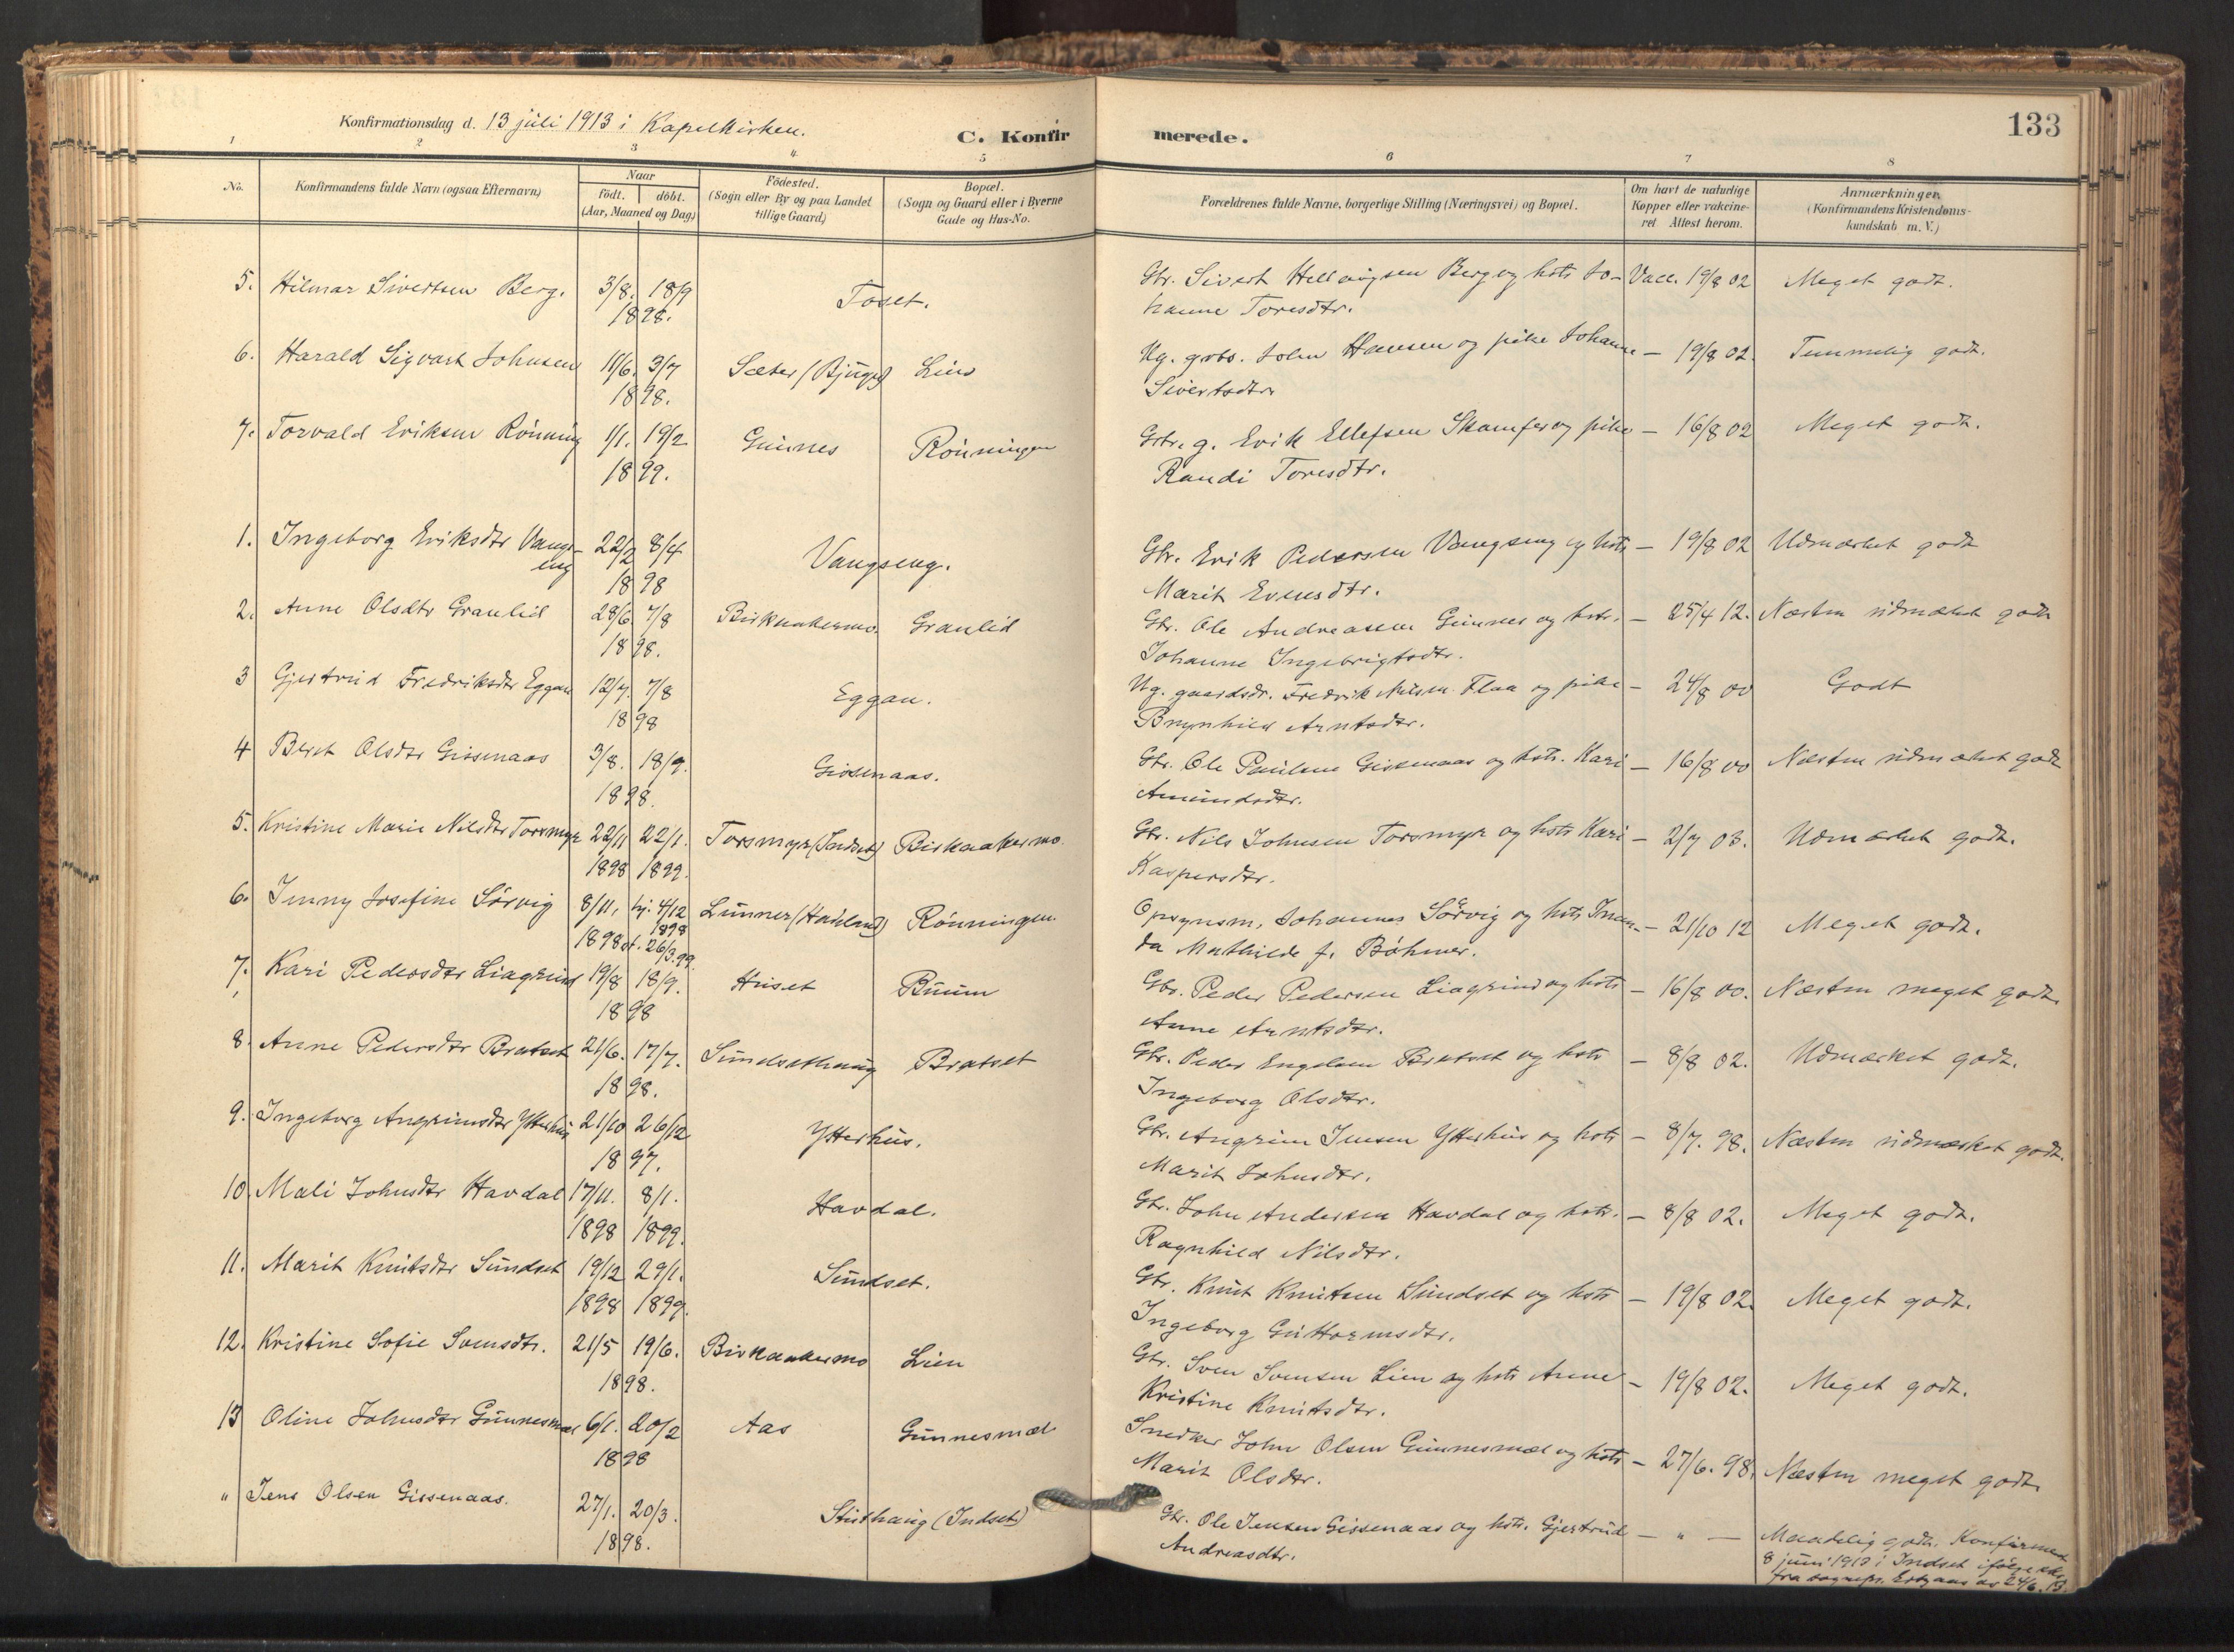 133
Konfirmationsdag d. 13 juli 1913 i Kapelkirken.
C. Konfir merede.
1 2 3 4. 5 6 7 8
No.
Konfirmandens fulde Navn (ogsaa Efternavn)
Naar
födt. döbt.
(Aar, Maaned og Dag)
Födested.
(Sogn eller By og paa Landet
tillige Gaard)
Bopæl.
(Sogn og Gaard eller i Byerne
Gade og Hus-No.
Forældrenes fulde Navne, borgerlige Stilling (Næringsvei) og Bopæl.
Om havt de naturlige
Kopper eller vakcine-
ret Attest herom.
Anmærkninger.
(Konfirmandens Kristendoms-
kundskab m. V.)
5. Hilmar Sivertsen Berg. 3/8. 18/9 Toset. Gbr. Sivert Hellingsen Berg og hstr Jo- Vacc. 19/8 02 Meget godt.
1898. hanne Toresdtr.
6. Harald Sigvart Johnsen 11/6. 3/7 Sæter (Bjugn) Lien Ug. grbr. John Hansen og pike Johanne — 19/8 02. Temmelig godt.
1898. Sivertsdtr
7. Torvald Eriksen Rönning 1/1. 19/2 Gunnes Rönningen Grbr. g. Erik Ellefsen Skamfer og pike — 16/8 02 Meget godt.
1899. Randi Toresdtr.
1. Ingeborg Eriksdtr Vangs- 22/2 8/4 Vangseng. Gbr. Erik Pedersen Vangseng og hstr — 19/8 02 Udmærket godt
eng 1898 Marit Evensdtr.
2. Anne Olsdtr Granlid 28/6. 7/8 Birkaakermo. Granlid Gbr. Ole Andreassen Gunnes og hstr. — 25/4 12. Næsten udmærket godt
1898. Johanne Ingebrigtsdtr.
3 Gjertrud Fredriksdtr Eggan 12/7. 7/8 Eggan. Ug. gaardsdr. Fredrik Nilsen Flaa og pike — 24/8 00 Godt
1898 Brynhild Arntsdtr.
4 Beret Olsdtr Gissenaas 3/8. 18/9. Gissenaas. Gbr. Ole Paulsen Gissenaas og hstr. Kari — 16/8 00 Næsten udmærket godt
1898. Amundsdtr.
5. Kristine Marie Nilsdtr Torsmyr 22/11 22/1. Torsmyr (Indset) Birkaakermo. Gbr. Nils Johnsen Torsmyr og hstr Kari — 2/7 03. Udmærket godt.
1898 1899. Kaspersdtr.
6. Jenny Josefine Sörvig 8/11, hj. 4/12 Lunner (Hadeland) Rönningen. Opsynsm. Johannes Sörvig og hstr — 21/10 12 Meget godt.
1898 1898 st. 26/3.99. da Mathilde f. Böhmer.
7. Kari Pedersdtr Liagrind 19/8 18/9. Huset Buum Gbr. Peder Pedersen Liagrind og hstr — 16/8 00. Næsten meget godt.
1898 Anne Arntsdtr.
8. Anne Pedersdtr Bratset 21/6. 17/7. Sundsethaug Bratset Gbr. Peder Engelsen Bratset og hstr — 8/8 02. Udmærket godt.
1898. Ingeborg Olsdtr.
9. Ingeborg Angrimsdtr Ytterhus 21/10 26/12 Ytterhus. Gbr. Angrim Jensen Ytterhus og hstr — 8/7. 98. Næsten udmærket godt.
1897. Marit Johnsdtr.
10. Mali Johnsdtr Havdal 17/11. 8/1. Havdal. Gbr. John Andersen Havdal og hstr. — 8/8 02. Meget godt.
1898 1899. Ragnhild Nilsdtr.
11. Marit Knutsdtr Sundset 19/12 29/1. Sundset. Gbr. Knut Knutsen Sundset og hstr — 19/8 02. Meget godt.
1898 1899. Ingeborg Guttormsdtr.
12. Kristine Sofie Svensdtr. 21/5 19/6. Birkaakermo Lien Gbr. Sven Svensen Lien og hstr Anne — 19/8 02. Meget godt.
1898. Kristine Knutsdtr.
13 Oline Johnsdtr Gunnesmæl 6/1. 20/2 Aas Gunnesmæl Snedker John Olsen Gunnesmæl og hstr — 27/6. 98. Næsten meget godt.
1898 Marit Olsdtr.
" Jens Olsen Gissenaas. 27/1. 20/3. Stuthaug (Indset) Gbr. Ole Jensen Gissenaas og hstr. Gjertrud — " — Maadelig godt. Konfirmert
1898. Andreasdtr. 8 juni 1913 i Indset ifölge
fra sognepr. av 24/6. 13.